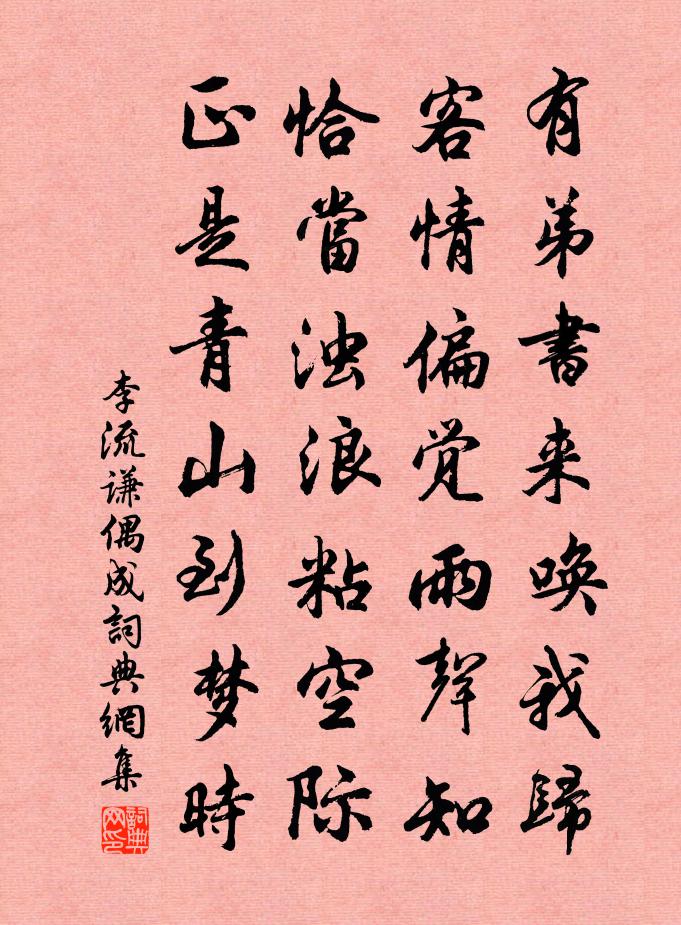 有弟書来唤我歸
客情偏覚雨聲知
恰當浊浪粘空际
正是青山到梦時
李流谦偶成詞典網集
詞典网印